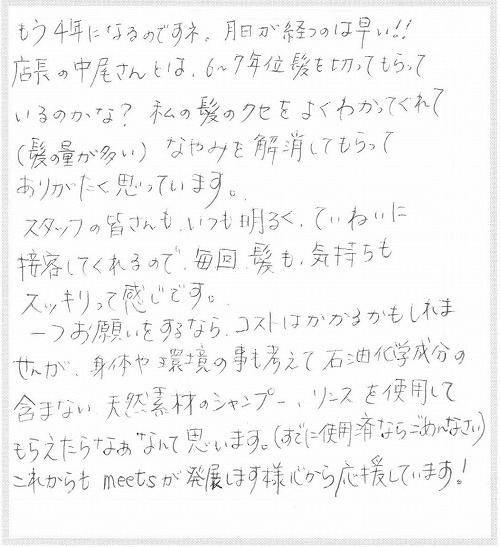 もう4年になるのですネ。月日が経つのは早い!!
店長の中尾さんとは、6~7年位髪を切ってもらって
いるのかな? 私の髪のクセをよくわかってくれて
(髪の量が多い) なやみを解消してもらって
ありがたく思っています。
スタッフの皆さんも、いつも明るく、ていねいに
接客してくれるので、毎回、髪も、気持ちも
スッキリって感じです。
一つお願いをするなら、コストはかかるかもしれま
せんが、身体や環境の事も考えて石油化学成分の
含まない天然素材のシャンプー、リンスを使用して
もらえたらなぁなんて思います。(すでに使用済ならごめんなさい)
これからもmeetsが発展します様心から応援しています!